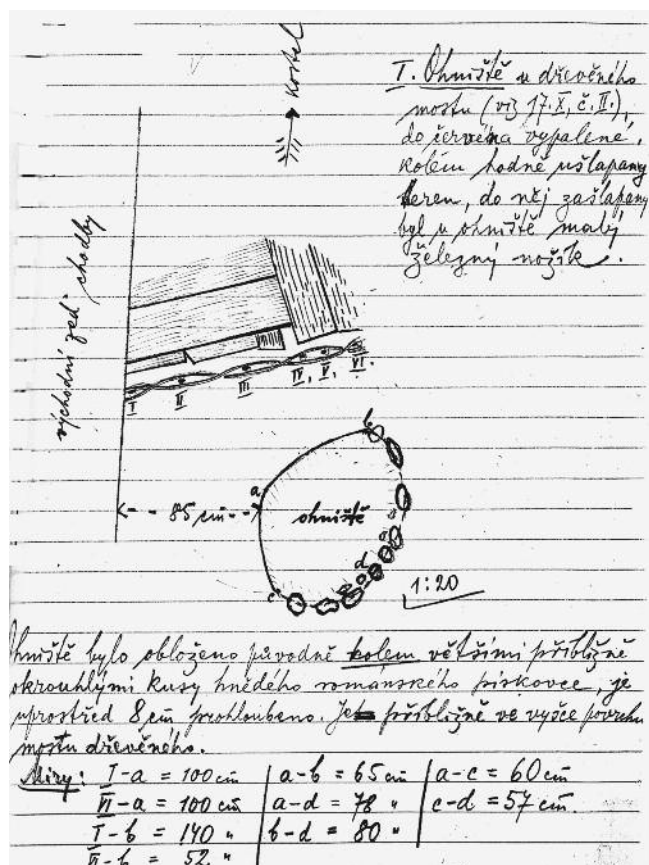 Kostel
I. Ohniště u dřevěného
mostu (viz 17.X, č. II.),
do červena vypálené.
Kolem hodně ušlapaný
teren, do něj zašlapaný
byl u ohniště malý
železný nožík.
východní zeď chodby
I II III IV, V, VI.
b
a
85 cm
ohniště
d
c
1:20
Ohniště bylo obloženo původně kolem většími přibližně
okrouhlými kusy hnědého románského pískovce, je
uprostřed 8 cm prohloubeno. Je přibližně ve výšce povrchu
mostu dřevěného.
Míry: I-a = 100 cm a-b = 65 cm a-c = 60 cm
VI-a = 100 cm a-d = 78 " c-d = 57 cm.
I-b = 140 " b-d = 80 "
VI-b = 52 "